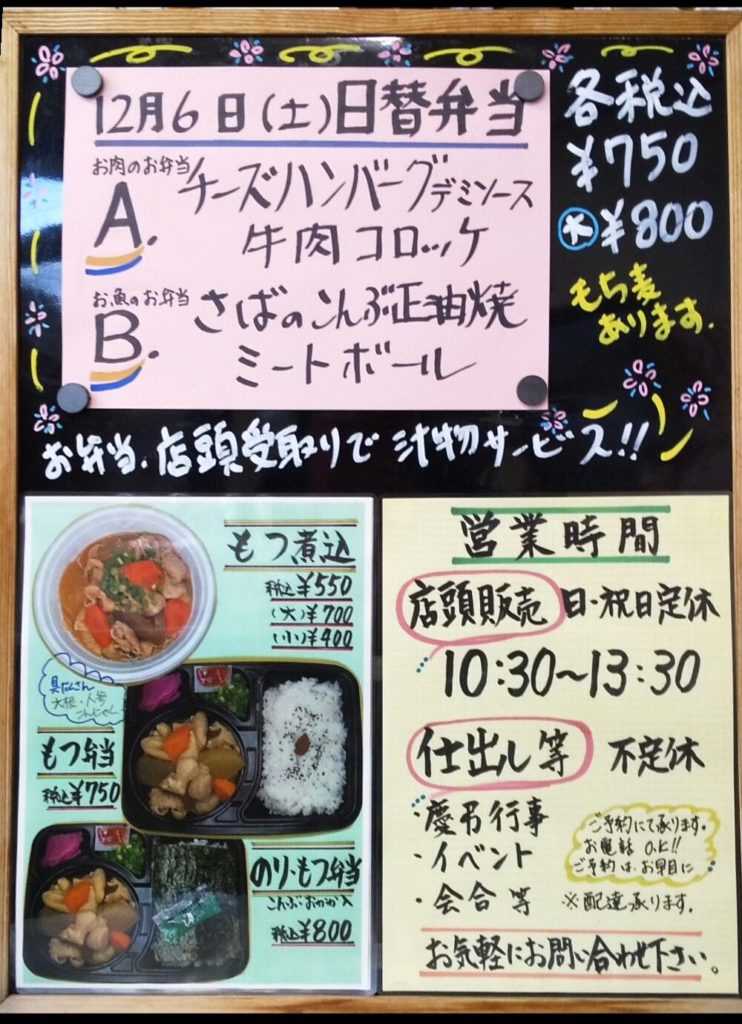 12月6日(土)日替弁当
お肉のお弁当
A. チーズハンバーグデミソース
牛肉コロッケ
お魚のお弁当
B. さばのこんぶ正油焼
ミートボール
各税込
¥750
大 ¥800
もち麦
あります.
お弁当、店頭受取りで 汁物サービス!!
もつ煮込
税込¥550
(大)¥700
(小)¥400
具だくさん
大根・人参
こんにゃく
もつ弁当
税込¥750
のり・もつ弁当
こんぶおかか入
税込¥800
営業時間
店頭販売 日・祝日定休
10:30~13:30
仕出し等 不定休
・慶弔行事
・イベント
・会合等
ご予約にて承ります。
お電話 O.K!!
ご予約は、お早目に
※配達承ります.
お気軽にお問い合わせ下さい。